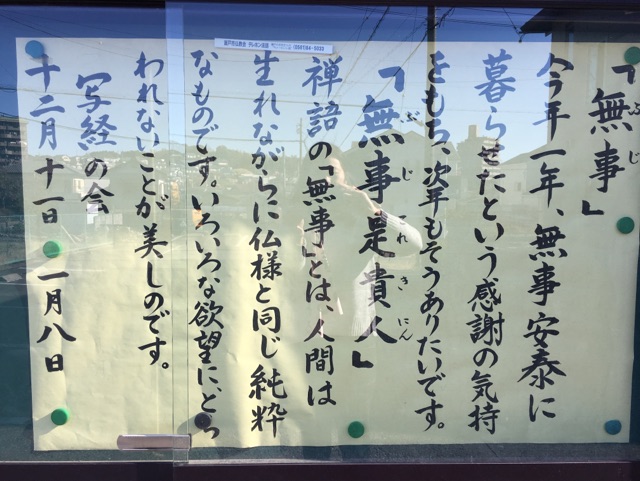 「無事」
ぶじ
今年一年、無事安泰に
暮らせたという感謝の気持
をもち、次年もそうありたいです。
「無事是貴人」
ぶじれきにん
禅語の「無事」とは、人間は
生れながらに仏様と同じ純粋
なものです。いろいろな欲望に、とら
われないことが美しのです。
写経の会
十二月十一日 一月八日